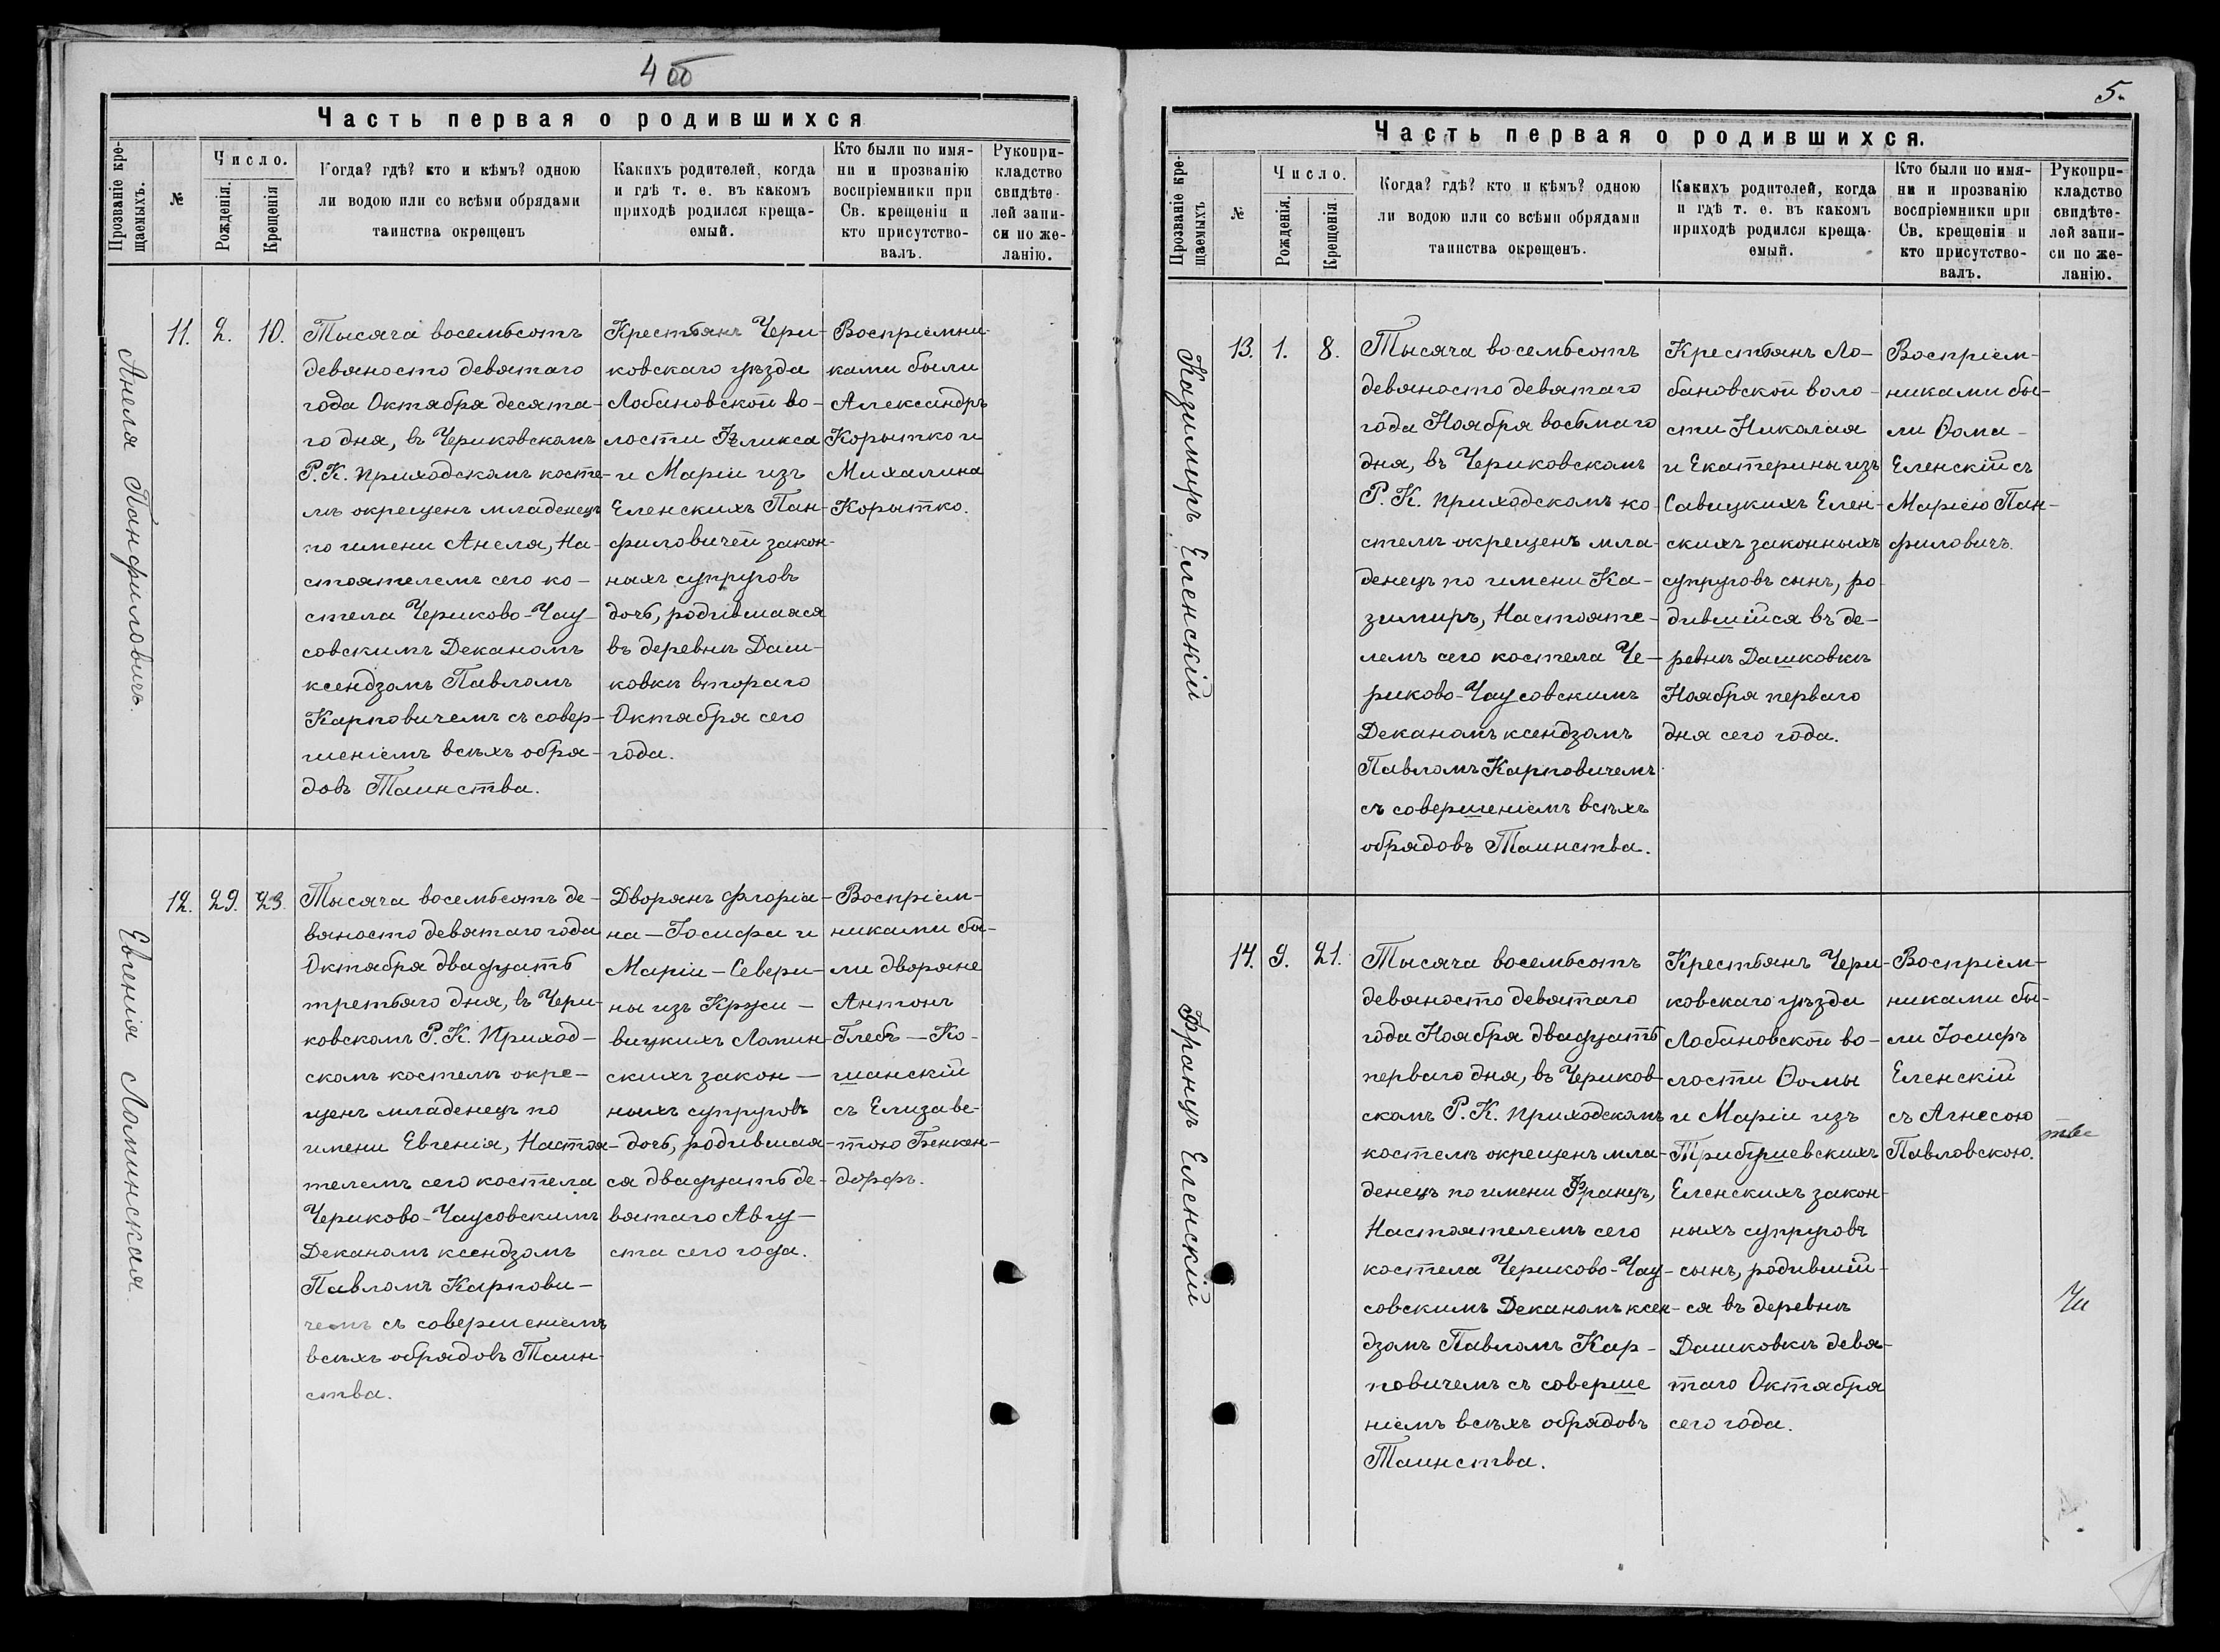 4 об
Часть первая о родившихся
Прозваніе кре-
щаемыхъ.
№
Число.
Рожденія.
Крещенія
Когда? гдѣ? кто и кѣмъ? одною
ли водою или со всѣми обрядами
таинства окрещенъ
Какихъ родителей, когда
и гдѣ т. е. въ какомъ
приходѣ родился креща-
емый.
Кто были по имя-
ни и прозванію
воспріемники при
Св. крещеніи и
кто присутство-
валъ.
Рукопри-
кладство
свидѣте-
лей запи-
си по же-
ланію.
Анеля Панфиловичъ.
11.
2.
10.
Тысяча восемьсотъ
девяносто девятаго
года Октября десята-
го дня, въ Чериковскомъ
Р. К. приходскомъ косте-
лѣ окрещенъ младенецъ
по имени Анеля, На-
стоятелемъ сего ко-
стела Чериково-Чау-
совскимъ Деканомъ
ксендзомъ Павломъ
Карповичемъ съ совер-
шеніемъ всѣхъ обря-
довъ Таинства.
Крестьянъ Чери-
ковскаго уѣзда
Лобановской во-
лости Феликса
и Маріи изъ
Еленскихъ Пан-
филовичей закон-
ныхъ супруговъ
дочь, родившаяся
въ деревнѣ Даш-
ковкѣ втораго
Октября сего
года.
Воспріемни-
ками были
Александръ
Корытко и
Михалина
Корытко.
Евгенія Ломинская
12.
29.
23.
Тысяча восемьсотъ де-
вяносто девятаго года
Октября двадцать
третьяго дня, въ Чери-
ковскомъ Р. К. Приход-
скомъ костелѣ окре-
щенъ младенецъ по
имени Евгенія, Настоя-
телемъ сего костела
Чериково-Чаусовскимъ
Деканомъ ксендзомъ
Павломъ Карпови-
чемъ съ совершеніемъ
всѣхъ обрядовъ Таин-
ства.
Дворянъ Флоріа-
на-Іосифа и
Маріи-Севери-
ны изъ Круси-
вицкихъ Ломин-
скихъ закон-
ныхъ супруговъ
дочь, родившая-
ся двадцать де-
вятаго Авгу-
ста сего года.
Воспріем-
никами бы-
ли дворяне
Антонъ
Глебъ-Ко-
шанскій
съ Елизаве-
тою Бенкен-
дорфъ.
5.
Часть первая о родившихся.
Прозваніе кре-
щаемыхъ
№
Число.
Рожденія.
Крещенія.
Когда? гдѣ? кто и кѣмъ? одною
ли водою или со всѣми обрядами
таинства окрещенъ.
Какихъ родителей, когда
и гдѣ т. е. въ какомъ
приходѣ родился креща-
емый.
Кто были по имя-
ни и прозванію
воспріемники при
Св. крещеніи и
кто присутство-
валъ.
Рукопри-
кладство
свидѣте-
лей запи-
си по же-
ланію.
Казимиръ Еленскій
13.
1.
8.
Тысяча восемьсотъ
девяносто девятаго
года Ноября восьмаго
дня, въ Чериковскомъ
Р. К. приходскомъ ко-
стелѣ окрещенъ мла-
денецъ по имени Ка-
зимиръ, Настояте-
лемъ сего костела Че-
риково-Чаусовскимъ
Деканомъ ксендзомъ
Павломъ Карповичемъ
съ совершеніемъ всѣхъ
обрядовъ Таинства.
Крестьянъ Ло-
бановской воло-
сти Николая
и Екатерины изъ
Савицкихъ Елен-
скихъ законныхъ
супруговъ сынъ, ро
дившійся въ де-
ревнѣ Дашковкѣ
Ноября перваго
дня сего года.
Воспріем-
никами бы-
ли Ѳома
Еленскій съ
Маріею Пан-
филовичъ.
Францъ Еленскій
14.
9.
21.
Тысяча восемьсотъ
девяносто девятаго
года Ноября двадцать
перваго дня, въ Чериков-
скомъ Р. К. приходскомъ
костелѣ окрещенъ мла-
денецъ по имени Францъ,
Настоятелемъ сего
костела Чериково-Чау-
совскимъ Деканомъ ксен-
дзомъ Павломъ Кар-
повичемъ съ соверше
ніемъ всѣхъ обрядовъ
Таинства.
Крестьянъ Чери-
ковскаго уѣзда
Лобановской во-
лости Ѳомы
и Маріи изъ
Еленскихъ закон-
ныхъ супруговъ
сынъ, родившій-
ся въ деревнѣ
Дашковкѣ девя-
таго Октября
сего года.
Воспріем-
никами бы-
ли Іосифъ
Еленскій
съ Агнесою
Павловскою.